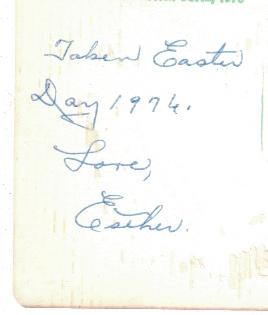 Taken Easter
Day 1974.
Love,
Esther.